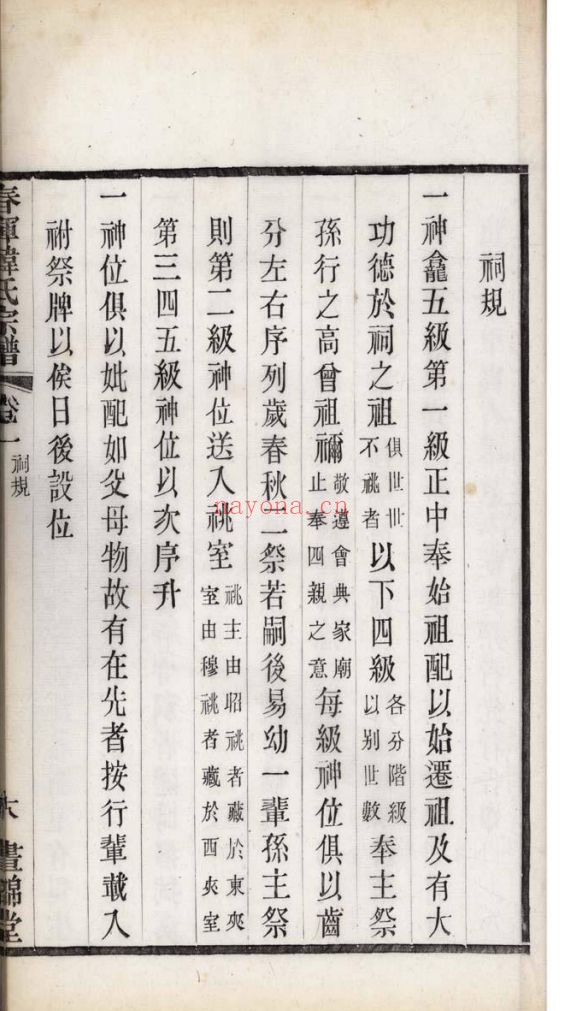 祠規
一神龕五級第一級正中奉始祖配以始遷祖及有大
功德於祠之祖俱世世不祧者以下四級各分階級以别世數奉主祭
孫行之高曾祖禰敬遵會典家廟止奉四親之意每級神位俱以齒
分左右序列歲春秋二祭若嗣後易幼一輩孫主祭
則第二級神位送入祧室祧主由昭祧者藏於東夾室由穆祧者藏於西夾室
第三四五級神位以次序升
一神位俱以妣配如父母物故有在先者按行輩載入
祔祭牌以俟日後設位
春暉韓氏宗譜 卷一 祠規
晝錦堂
nayona.cn